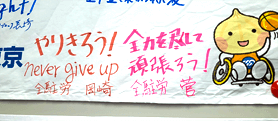 ight!
東京
やりきろう!
never give up
全駐労 岡崎
全力を尽して
頑張ろう!
全駐労 菅